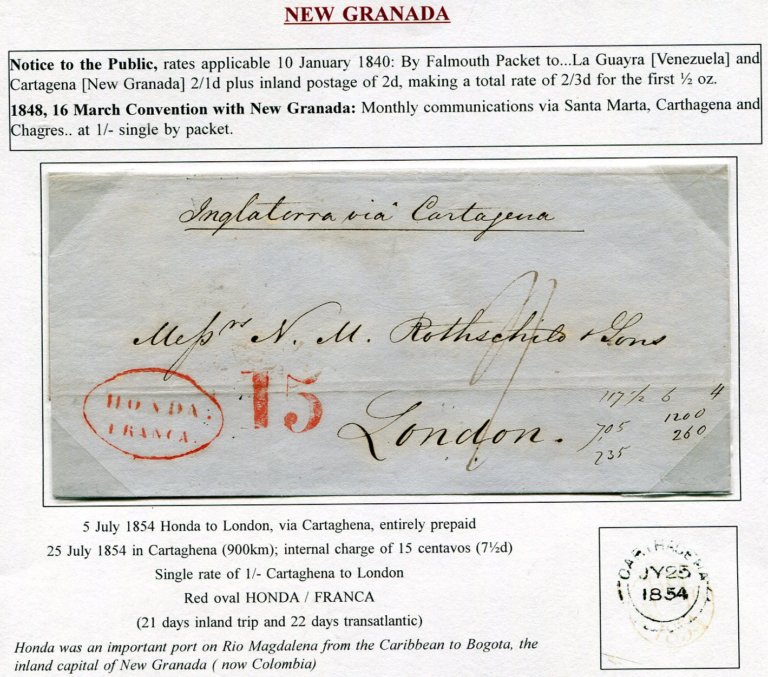 NEW GRANADA
Notice to the Public, rates applicable 10 January 1840: By Falmouth Packet to...La Guayra [Venezuela] and
Cartagena [New Granada] 2/1d plus inland postage of 2d, making a total rate of 2/3d for the first ½ oz.
1848, 16 March Convention with New Granada: Monthly communications via Santa Marta, Carthagena and
Chagres.. at 1/- single by packet.
Inglaterra via Cartagena
Messrs N. M. Rothschild & Sons
London.
HONDA.
FRANCA.
15
117½ 6 4
705 1200
235 260
5 July 1854 Honda to London, via Cartaghena, entirely prepaid
25 July 1854 in Cartaghena (900km); internal charge of 15 centavos (7½d)
Single rate of 1/- Cartaghena to London
Red oval HONDA / FRANCA
(21 days inland trip and 22 days transatlantic)
Honda was an important port on Rio Magdalena from the Caribbean to Bogota, the
inland capital of New Granada ( now Colombia)
CARTHAGENA
JY25
1854